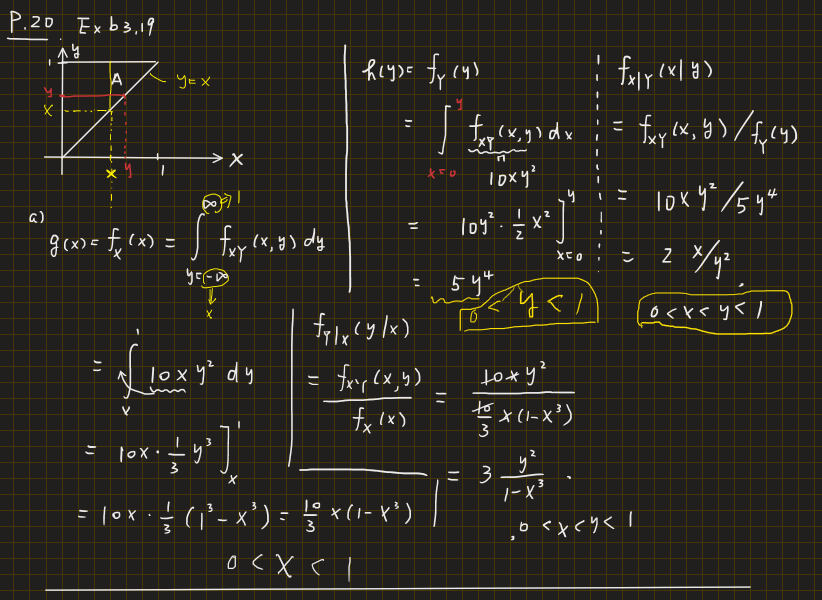 P.20 Ex b3.19
y
1
A
y = x
y
x
x y 1 x
a)
g(x) = f_X(x) = ∫_{y=-∞}^{∞} f_XY(x,y) dy
∞ → 1
-∞ → x
= ∫_x^1 10x y² dy
= 10x · 1/3 y³ ]_x^1
= 10x · 1/3 (1³ - x³) = 10/3 x(1 - x³)
0 < x < 1
h(y) = f_Y(y)
= ∫_{x=0}^{y} f_XY(x,y) dx
10xy²
= 10y² · 1/2 x² ]_{x=0}^{y}
= 5y⁴
0 < y < 1
f_X|Y (x|y)
= f_XY(x,y) / f_Y(y)
= 10x y² / 5y⁴
= 2 x/y².
0 < x < y < 1
f_Y|X (y|x)
= f_XY(x,y) / f_X(x) = 10xy² / (10/3 x(1-x³))
= 3 y²/(1-x³) .
, 0 < x < y < 1